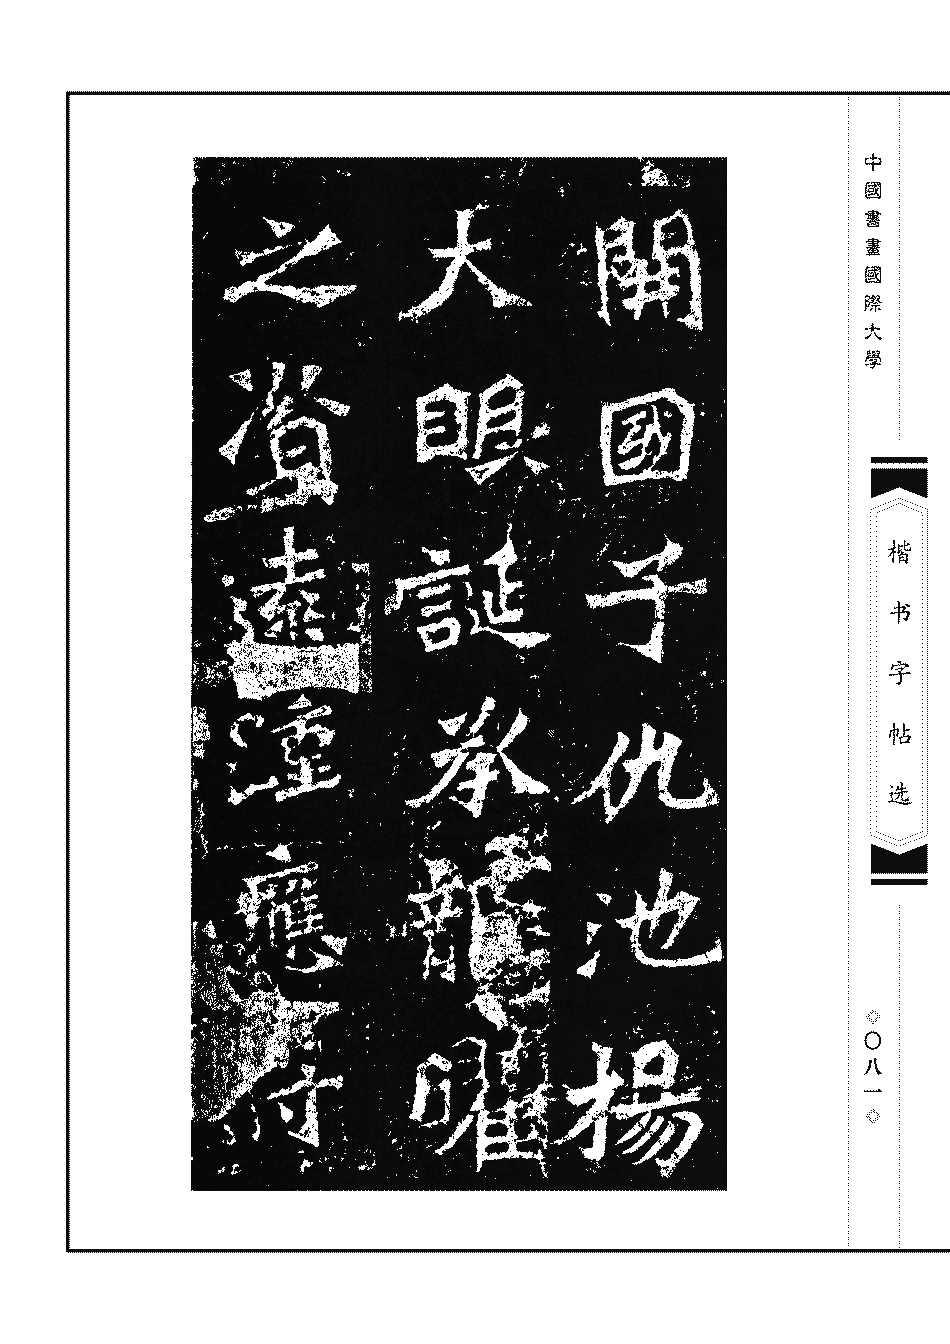 中國書畫國際大學
楷书字帖选
◇〇八一◇
開國子仇池楊
大眼誕承龍曜
之資遠踵應符